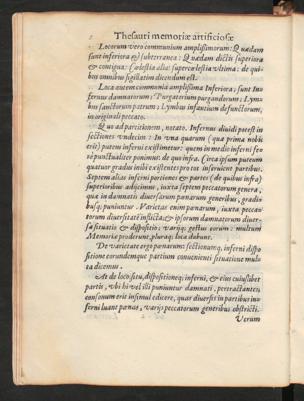 Thesauri memoriæ artificiosæ
Locorum vero communium amplissimorum: Quædam
sunt inferiora & subterranea: Quædam dictis superiora
& contigua: Cælestia alia: supercælestia vltima: de qui-
bus omnibus sigillatim dicendum est.
Loca autem communia amplissima Inferiora, sunt In-
fernus damnatorum: Purgatorium purgandorum: Lym-
bus sanctorum patrum: Lymbus infantium defunctorum,
in originali peccato.
Quo ad partitionem, notato. Infernus diuidi potest in
sectiones vndecim: In vna quarum (quæ prima nobis
erit) puteum inferni existimetur: quem in medio inferni fe-
re punctualiter ponimus: de quo infra. Circa ipsum puteum
quatuor gradus inibi existentes pro tot inseruient partibus.
Septem aliæ inferni portiones & partes (de quibus infra)
superioribus adijciemus, iuxta septem peccatorum genera,
quæ in damnatis diuersarum pœnarum generibus, gradi-
busq; puniuntur. Varietas enim pœnarum, iuxta pecca-
torum diuersitatē inflicta: & ipsorum damnatorum diuer-
sa situatio & dispositio: varijq; gestus eorum: multum
Memoriæ proderunt, pluraq; loca dabunt.
De varietate ergo pœnarum: sectionumq; inferni dispo-
sitione earundemque partium conuenienti situatione mul-
ta dicemus.
At de loco situ, dispositioneq; inferni, & eius cuiuslibet
partis, vbi hi vel illi puniuntur damnati, pertractanter,
consonum erit insimul edicere, quar diuersis in partibus in-
ferni luant pœnas, varijs peccatorum generibus obstricti.
Verum